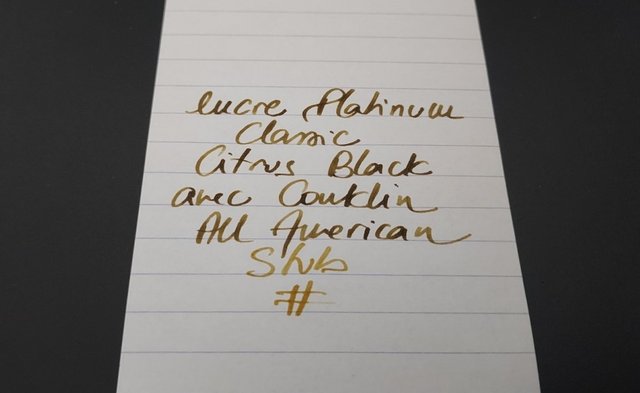 encre Platinum
Classic
Citrus Black
avec Conklin
All American
Stub
#